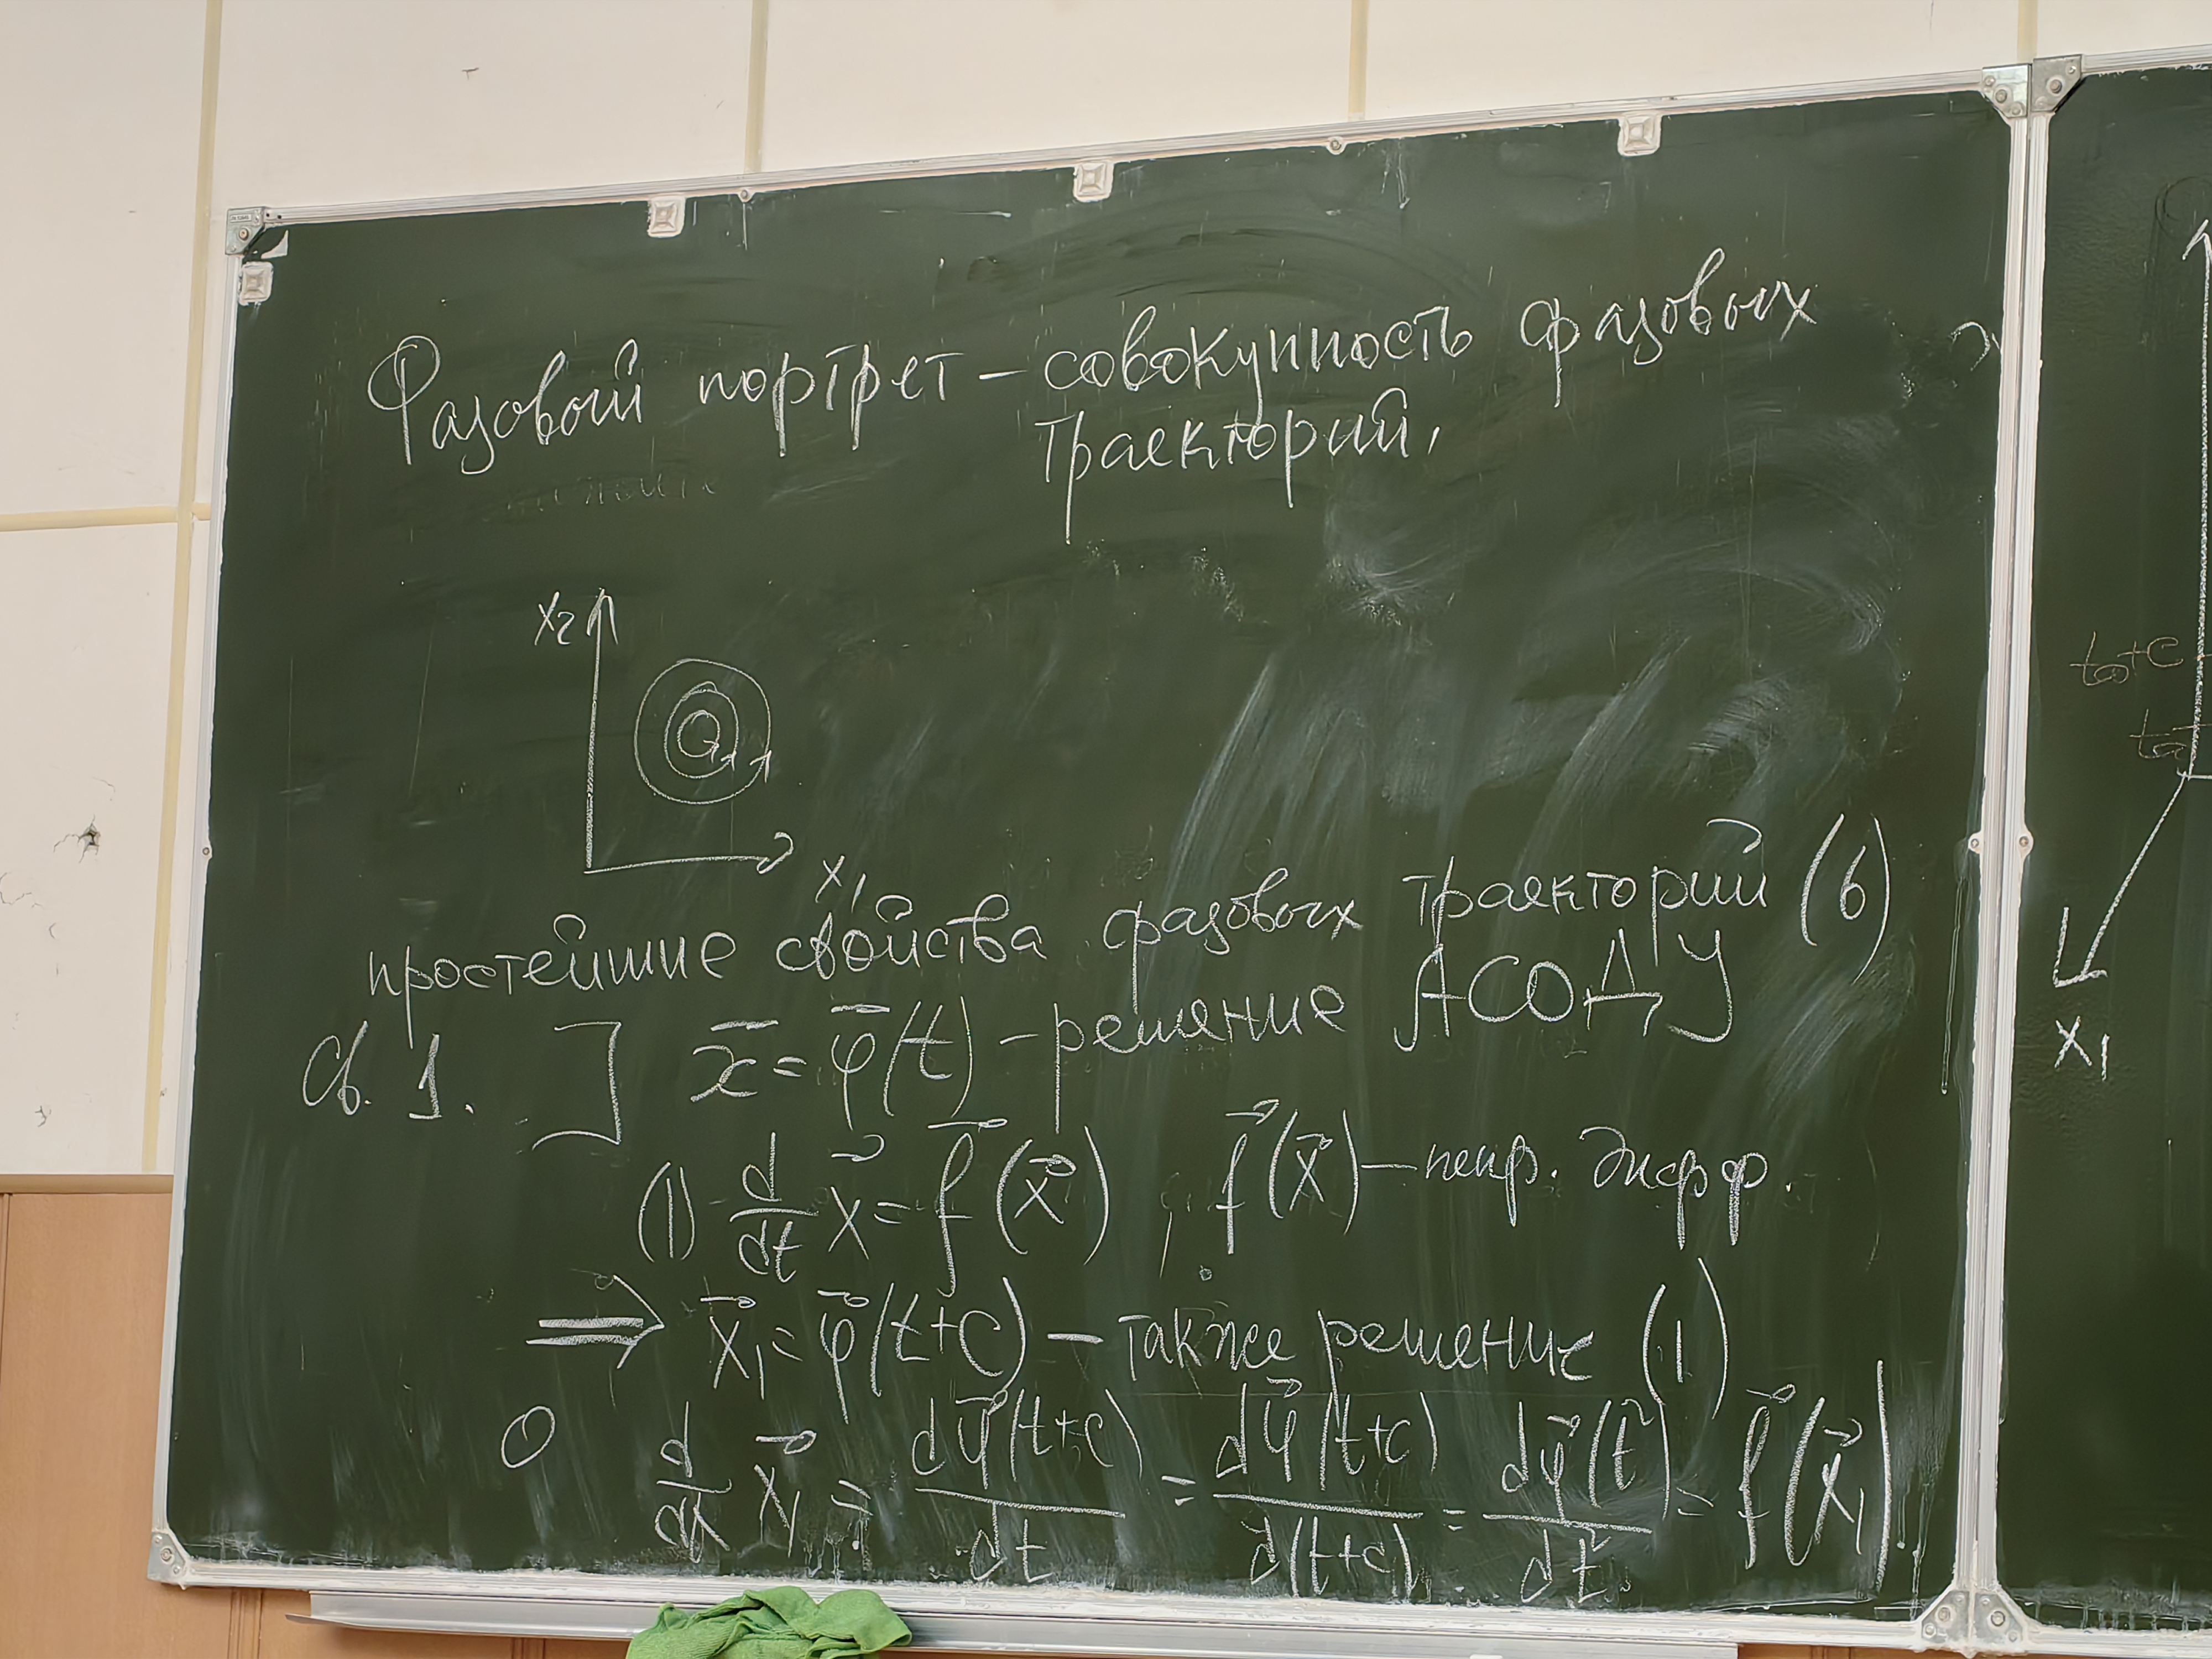 Фазовый портрет – совокупность фазовых
траекторий.
x₂
x₁
простейшие свойства фазовых траекторий (6)
Св. 1. ] x̄ = φ̄(t) – решение АСОДУ
(1) d/dt x⃗ = f⃗(x⃗), f⃗(x⃗) – непр. дифф.
⇒ x⃗₁ = φ⃗(t+c) – также решение (1)
0 d/dt x⃗₁ = dφ⃗(t+c)/dt = dφ⃗(t+c)/d(t+c) = dφ⃗(t̃)/dt̃ = f⃗(x⃗₁).
t₀+c
t₀
x₁